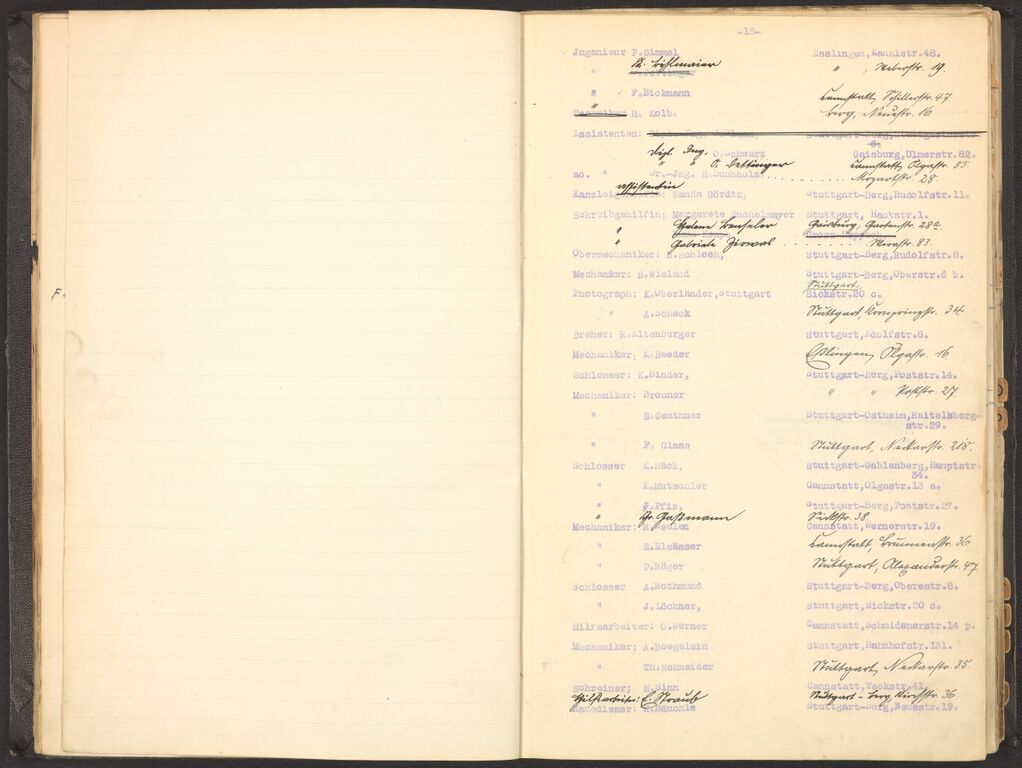 -15-
Jngenieur P.Gimmel Esslingen,Kanalstr.48.
" " , Weberstr. 19.
" F.Bickmann Cannstatt, Schillerstr. 47
Techniker H. Kolb. Berg, Neuestr. 16
Assistenten:
Dipl. Ing. O.Schwarz Gaisburg,Ulmerstr.82.
" O. Dettinger Cannstatt, Olgastr. 55
ao. " Dr.-Jng. H.Buchholz. Mozartstr. 28
Assistentin
Wanda Gördts, Stuttgart-Berg,Rudolfstr.11.
Schreibgehilfin: Margarete Stuttgart, Hackstr.1.
" Helene Benseler Gaisburg, Gartenstr. 28a
" Gabriele Zirwas Werastr. 83
Obermechaniker: Stuttgart-Berg,Rudolfstr.8.
Mechaniker: E.Wieland Stuttgart-Berg,Oberstr.6 b.
Stuttgart.
Photograph: K.Oberländer,Stuttgart Sickstr.20 c.
" A.Scheck Stuttgart Kronprinzstr. 34
F.
Dreher: R.Altenburger Stuttgart,Adolfstr.8.
Mechaniker: K.Baeder Eßlingen, Olgastr. 16
Schlosser: K.Binder, Stuttgart-Berg,Poststr.14.
Mechaniker: Bronner " " Poststr. 27.
" E.Genthner Stuttgart-Ostheim,Raitelsberg-
str.29.
" F. Glass Stuttgart, Neckarstr. 218.
Schlosser K.Häck, Stuttgart-Gablenberg,Hauptstr
34.
" K.Hutschler Cannstatt,Olgastr.13 a.
" J.Pfiz, Stuttgart-Berg,Poststr.27.
" Gaßmann Sickstr. 38.
Mechaniker: Cannstatt,Wernerstr.19.
" E.Elsässer Cannstatt, Brunnenstr. 36
" P.Röger Stuttgart, Alexanderstr. 47
Schlosser A.Rothmund Stuttgart-Berg,Oberestr.8.
" J.Löchner, Stuttgart,Sickstr.20 c.
Hilfsarbeiter: G.Werner Cannstatt,Schmidenerstr.14 p.
Mechaniker: A.Roegelein Stuttgart,Bahnhofstr.131.
" Th.Schneider Stuttgart, Neckarstr. 35.
Schreiner: H.Sinn Cannstatt,Teckstr.41.
Hilfsarbeiter: E. Straub Stuttgart - Berg, Kirchstr. 36
K.Bäuchle Stuttgart-Berg,Neuestr.19.